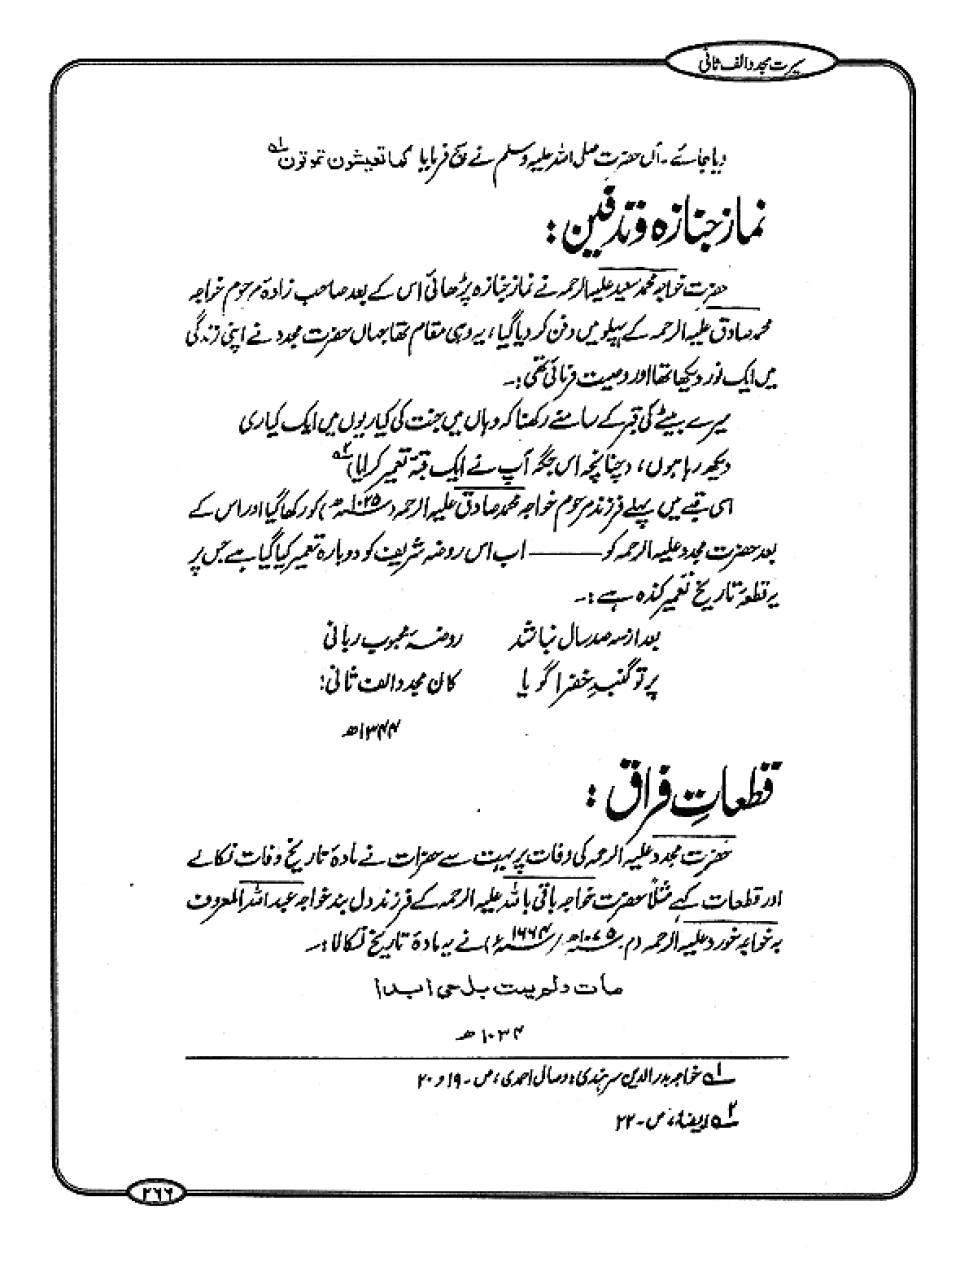 سیرت مجدد الف ثانی
دیا جائے۔ آں حضرت صلی اللہ علیہ وسلم نے سچ فرمایا کما تعیشون تموتون ؎۱
نماز جنازہ و تدفین :
حضرت خواجہ محمد سعید علیہ الرحمہ نے نماز جنازہ پڑھائی اس کے بعد صاحب زادۂ مرحوم خواجہ
محمد صادق علیہ الرحمہ کے پہلو میں دفن کر دیا گیا، یہ وہی مقام تھا جہاں حضرت مجدد نے اپنی زندگی
میں ایک نور دیکھا تھا اور وصیت فرمائی تھی :۔
میرے بیٹے کی قبر کے سامنے رکھنا کہ وہاں میں جنت کی کیاریوں میں ایک کیاری
دیکھ رہا ہوں، (چنانچہ اس جگہ آپ نے ایک قبہ تعمیر کرایا) ؎۲
اسی قبے میں پہلے فرزند مرحوم خواجہ محمد صادق علیہ الرحمہ (۱۰۲۵ھ) کو رکھا گیا اور اس کے
بعد حضرت مجدد علیہ الرحمہ کو ——— اب اس روضہ شریف کو دوبارہ تعمیر کیا گیا ہے جس پر
یہ قطعۂ تاریخ تعمیر کندہ ہے :۔
بعد از سہ صد سال نبا شد روضۂ محبوب ربانی
پر تو گنبدِ خضرا گویا کان مجدد الف ثانی؛
۱۳۴۴ھ
قطعاتِ فراق :
حضرت مجدد علیہ الرحمہ کی وفات پر بہت سے حضرات نے مادۂ تاریخ وفات نکالے
اور قطعات کہے مثلاً حضرت خواجہ باقی باللہ علیہ الرحمہ کے فرزند دل بند خواجہ عبد اللہ المعروف
بہ خواجہ خورد علیہ الرحمہ (م۔ ۱۰۷۵ھ / ۱۶۶۴ء) نے یہ مادۂ تاریخ نکالا :۔
مات ولم یمت بل حی ابدا
۱۰۳۴ھ
؎۱ خواجہ بدر الدین سرہندی : وصال احمدی، ص۔ ۱۹ و ۲۰
؎۲ ایضاً، ص۔ ۲۲
۲۶۶